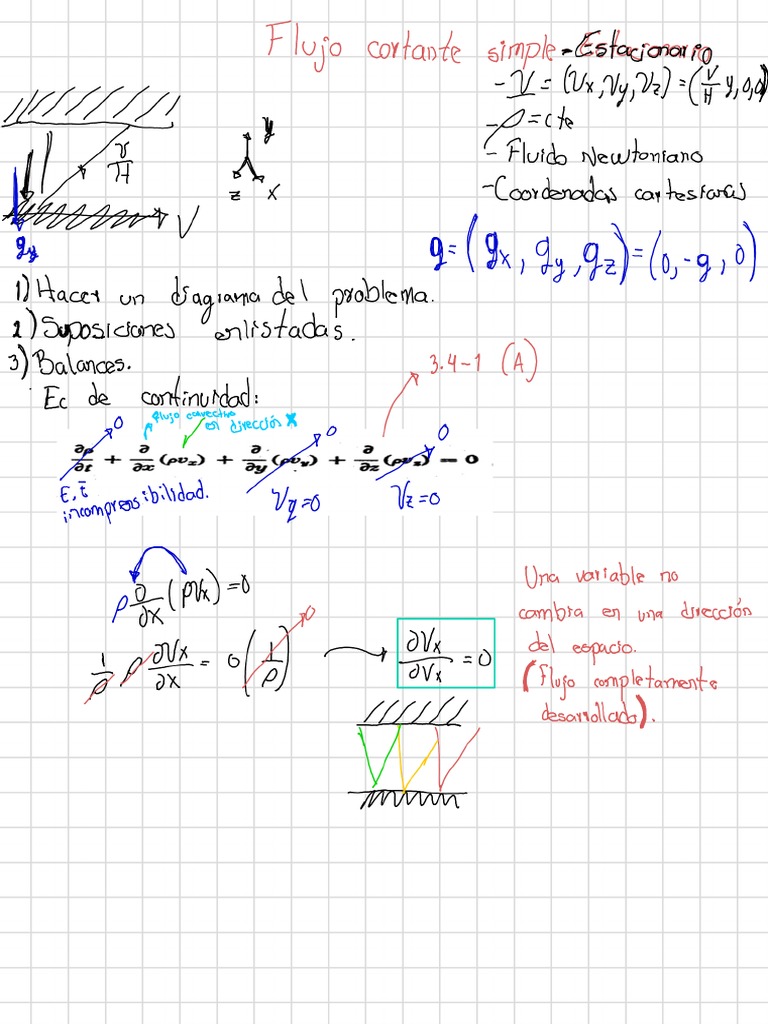 Flujo cortante simple - Estacionario
- V = (Vx, Vy, Vz) = (V/H y, 0, 0)
- ρ = cte
- Fluido Newtoniano
- Coordenadas cartesianas
y
z x
V/H
V
gy
g = (gx, gy, gz) = (0, -g, 0)
1) Hacer un diagrama del problema.
2) Suposiciones enlistadas.
3) Balances.
3.4-1 (A)
Ec de continuidad:
flujo convectivo
en dirección x
0 0 0
∂ρ/∂t + ∂/∂x (ρvx) + ∂/∂y (ρvy) + ∂/∂z (ρvz) = 0
E.E
incompresibilidad.
Vy = 0
Vz = 0
ρ ∂/∂x (ρVx) = 0
1/ρ ρ ∂Vx/∂x = 0 (1/ρ) 0
∂Vx/∂Vx = 0
Una variable no
cambia en una dirección
del espacio.
(flujo completamente
desarrollado).